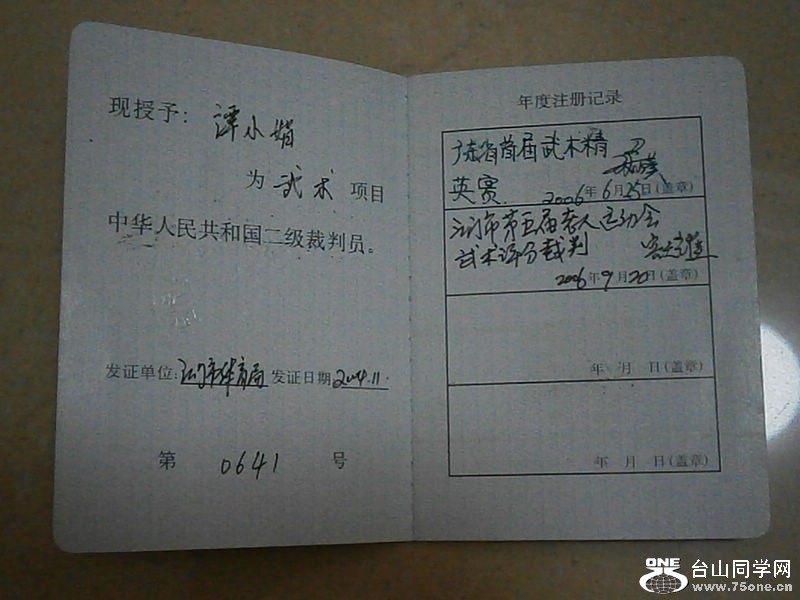 现授予：谭小娟
为 武术 项目
中华人民共和国二级裁判员。
发证单位：江门市体育局 发证日期 2004.11.
第 0641 号
年度注册记录
广东省首届武术精
英赛
2006年6月25日（盖章）
江门市第五届老人运动会
武术评分裁判
2006年9月20日（盖章）
年 月 日（盖章）
年 月 日（盖章）
ONE 台山同学网
www.75one.cn